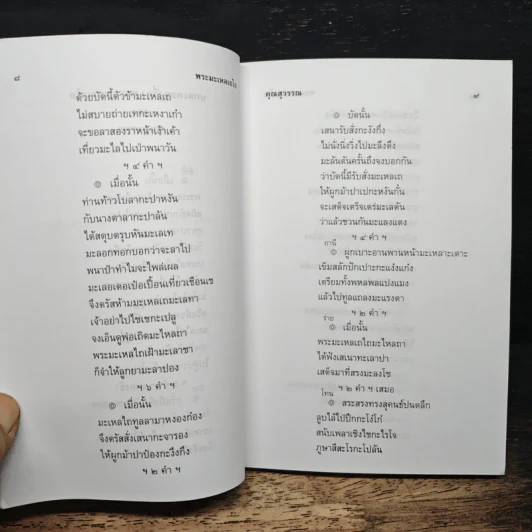 ๘ พระมะเหลเถไถ
ด้วยบัดนี้ตัวข้ามะเหลเถ
ไม่สบายถ่ายเทกะเหงาเก๋า
จะขอลาสองราหน้าเง้าเค้า
เที่ยวมะไลไปเป่าพนาวัน
ฯ ๔ คำ ฯ
๏ เมื่อนั้น
ท่านท้าวโปลากะปาหงัน
กับนางตาลากะปาลัน
ได้สดุบตรุบหันมะเลเท
มะลอกทอกบอกว่าจะลาไป
พนาป๋าทำไมจะไพล่เผล
มะเลอเตอเป๋อเปื้อนเที่ยวเชือนเช
จึงตรัสห้ามมะเหลเถมะเลทา
เจ้าอย่าไปไชเชกะเปลู
จงเอ็นดูพ่อเถิดมะไหลถา
พระมะเหลไถเฝ้ามะเลาชา
ก็จำให้ลูกยามะลาปอง
ฯ ๖ คำ ฯ
๏ เมื่อนั้น
มะเหลไถทูลลามาหงองก๋อง
จึงตรัสสั่งเสนากะจารอง
ให้ผูกม้าป๋องกะงิงกึง
ฯ ๒ คำ ฯ
คุณสุวรรณ ๙
๏ บัดนั้น
เสนารับสั่งกะงังกึ่ง
ไม่นั่งนิ่งวิ่งไปมะลึงตึง
มะลันตันครั้นถึงจงบอกกัน
ว่าบัดนี้มีรับสั่งมะเหลเถ
ให้ผูกม้าเปเปกะหงักงั่น
จะเสด็จเตร็จเตร่มะเลตัน
ว่าแล้วชวนกันมะแลงแตง
ฯ ๔ คำ ฯ
ยานี
๏ ผูกเบาะอานพานหน้ามะเหลาะเตาะ
เข้มสลักปักเปาะกะแง๋งแก๋ง
เตรียมทั้งพหลพลแปงแมง
แล้วไปทูลแถลงมะแรงตา
ฯ ๒ คำ ฯ
ร่าย
๏ เมื่อนั้น
พระมะเหลเถไถมะไหลถา
ได้ฟังเสนาทะเลาปา
เสด็จมาที่สรงมะลงโช
ฯ ๒ คำ ฯ เสมอ
โทน
๏ สระสรงทรงสุคนธ์ปนตลึก
ลูบไล้ไปปึกกะโง๋โก๋
สนับเพลาเชิงไชกะไรไจ
ภูษาสีสะโรกะโปลัน